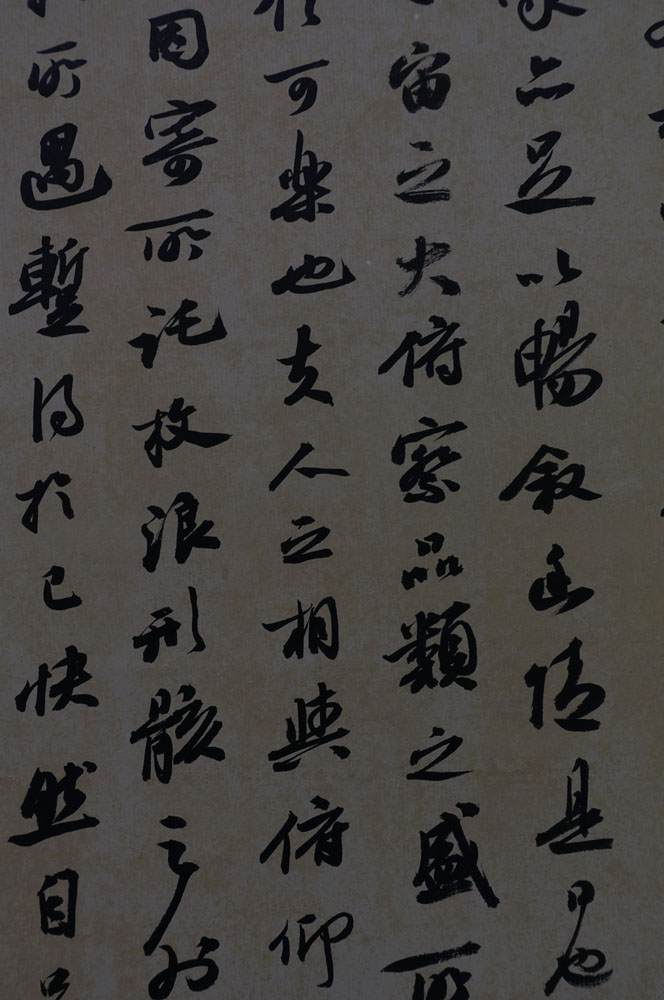 亦足以暢叙幽情是日也
宙之大俯察品類之盛所
可樂也夫人之相與俯仰
因寄所託放浪形骸之外
所遇暫得於己快然自